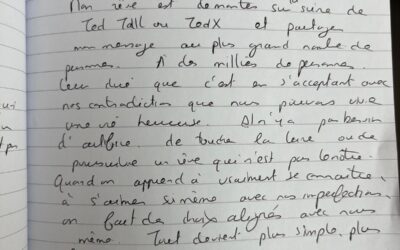 Mon rêve est de monter sur scène de
Ted Talk ou TedX et partager
mon message au plus grand nombre de
personnes. A des milliers de personnes
Leur dire que c'est en s'acceptant avec
nos contradiction que nous pouvons vivre
une vie heureuse. Il n'y a pas besoin
d'artifice, de toucher la lune ou de
poursuivre un rêve qui n'est pas le nôtre.
Quand on apprend à vraiment se connaître,
à s'aimer soi même avec nos imperfections,
on fait des choix alignés avec nous
même. Tout devient plus simple, plus